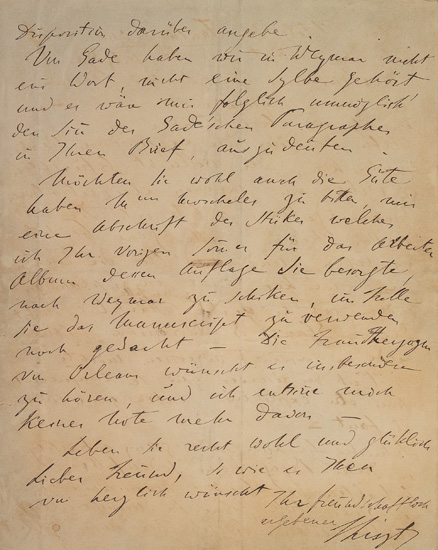 Disposition darüber angebe.
Von Gade haben wir in Weymar nicht
ein Wort, nicht eine Sylbe gehört
und es wäre mir folglich unmöglich
den Sin des Gade'schen Paragraphes
in Ihrem Brief, auszudeuten.
Möchten Sie wohl auch die Güte
haben Moscheles zu bitten, mir
eine Abschrift des Stückes welches
ich Ihr vorigen für das
Album dessen Auflage Sie besorgte,
nach Weymar zu schicken, im Falle
Sie das Manuscript zu verwenden
noch gedacht — Die Frau Herzogin
von Orleans wünscht es
zu hören, und ich entsine mich
keiner Note mehr davon —
Leben Sie recht wohl und glücklich
Lieber Freund, so wie es Ihnen
von herzlich wünscht
Ihr freundschaftlich
ergebener
FLiszt